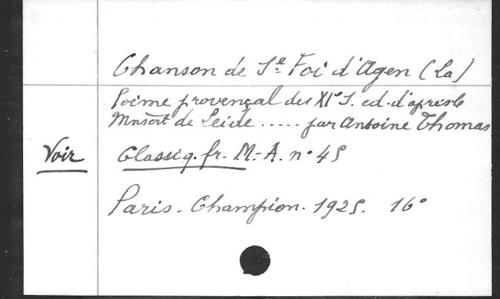 Chanson de Ste Foi d'Agen (La)
Poème provençal du XIe S. ed. d'après le
Mnscrt de Leide ..... par Antoine Thomas
Voir Classiq. fr. M.-A. n° 45
Paris - Champion - 1925. 16°